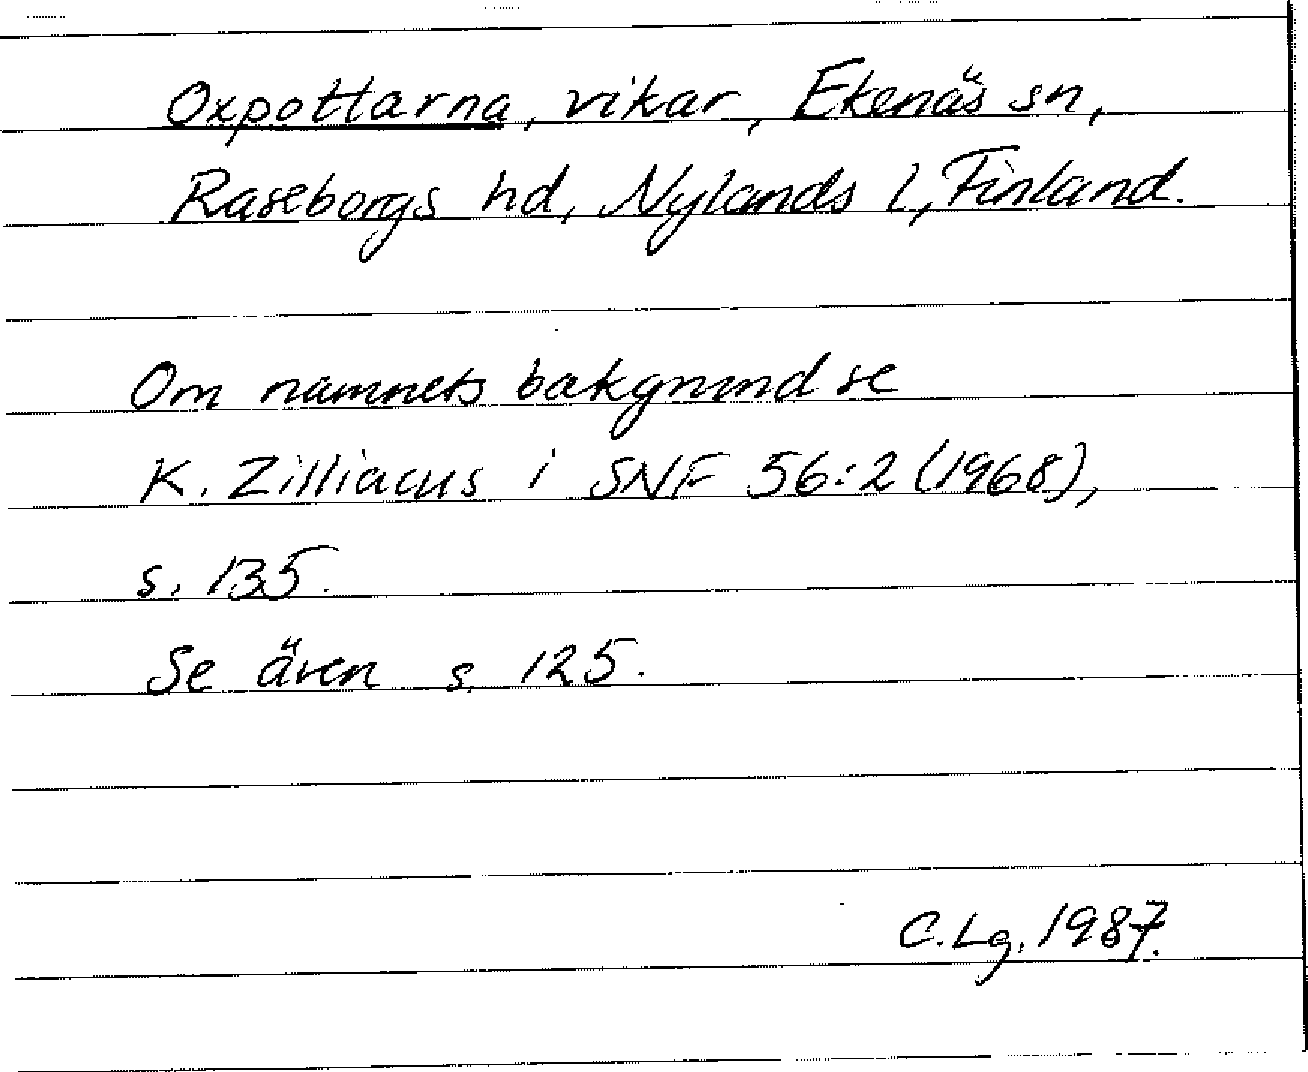 Oxpottarna, vikar, Ekenäs sn,
Raseborgs hd, Nylands l, Finland.
Om namnets bakgrund se
K. Zilliacus i SNF 56:2 (1968),
s. 135.
Se även s. 125.
C.Lg. 1987.